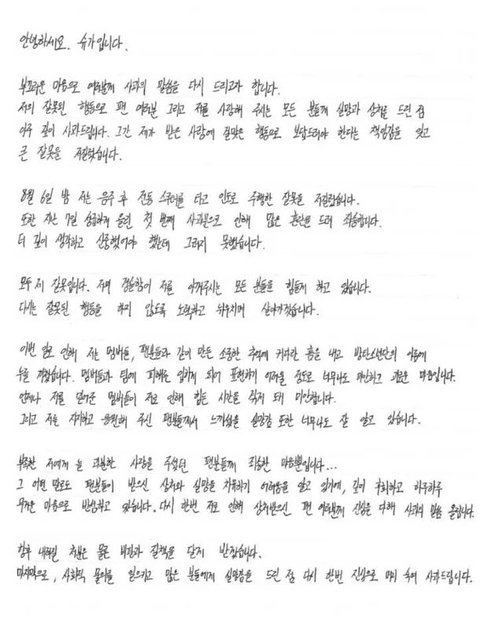 안녕하세요. 슈가입니다.
부끄러운 마음으로 여러분께 사과의 말씀을 다시 드리고자 합니다.
저의 잘못된 행동으로 팬 여러분 그리고 저를 사랑해 주시는 모든 분들께 실망과 상처를 드린 점
아주 깊이 사과드립니다. 그간 제가 받은 사랑에 걸맞은 행동으로 보답드려야 한다는 책임감을 잊고
큰 잘못을 저질렀습니다.
8월 6일 밤 저는 음주 후 전동 스쿠터를 타고 인도로 주행한 잘못을 저질렀습니다.
또한 지난 7일 성급하게 올린 첫 번째 사과문으로 인해 많은 혼란을 드려 죄송합니다.
더 깊이 생각하고 신중했어야 했는데 그러지 못했습니다.
모두 제 잘못입니다. 저의 경솔함이 저를 아껴주시는 모든 분들을 힘들게 하고 있습니다.
다시는 잘못된 행동을 하지 않도록 노력하고 뉘우치며 살아가겠습니다.
이번 일로 인해 저는 멤버들, 팬분들과 같이 만든 소중한 추억에 커다란 흠을 내고 방탄소년단의 이름에
누를 끼쳤습니다. 멤버들과 팀에 피해를 입히게 되어 표현하기 어려울 정도로 너무나도 미안하고 괴로운 마음입니다.
언제나 저를 믿어준 멤버들이 저로 인해 힘든 시간을 갖게 돼 미안합니다.
그리고 저를 지지하고 응원해 주신 팬분들께서 느끼셨을 실망감 또한 너무나도 잘 알고 있습니다.
부족한 저에게 늘 과분한 사랑을 주셨던 팬분들께 죄송한 마음뿐입니다...
그 어떤 말로도 팬분들이 받으신 상처와 실망을 치유하기 어려움을 알고 있기에, 깊이 후회하고 하루하루
무거운 마음으로 반성하고 있습니다. 다시 한번 저로 인해 상처받으신 팬 여러분께 진심을 다해 사과의 말씀 올립니다.
향후 내려질 처분은 물론 비판과 질책을 달게 받겠습니다.
마지막으로, 사회적 물의를 일으키고 많은 분들에게 실망감을 드린 점 다시 한번 진심으로 머리 숙여 사과드립니다.